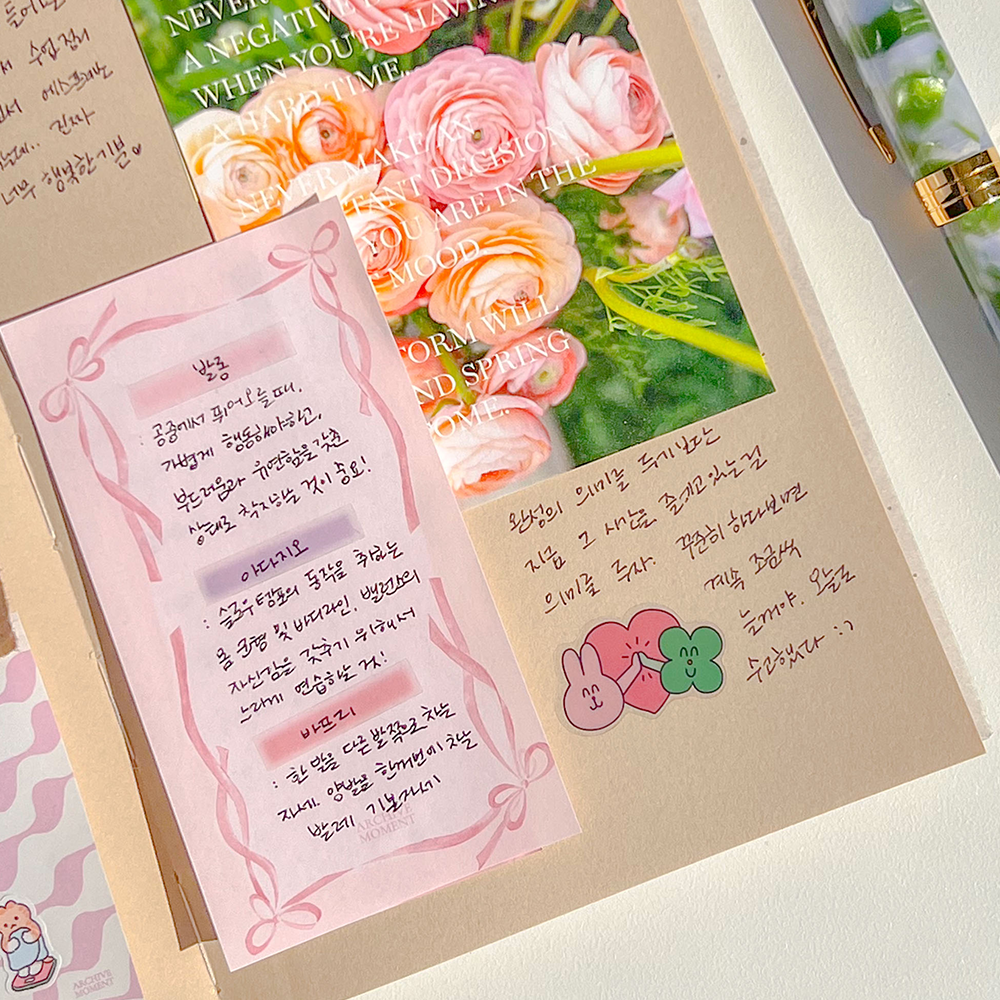 들어
서 수업 정리
서 에스프레소
는데.. 진짜
너무 행복한 기분
NEVER
A NEGATIVE
WHEN YOU'RE HAVING
A HARD TIME.
NEVER MAKE AN
TANT DECISION
YOU ARE IN THE
MOOD
TORM WILL
ND SPRING
OME.
발롱
: 공중에서 뛰어오를 때,
가볍게 행동해야하고,
부드러움과 유연함을 갖춘
상태로 착지하는 것이 중요!
아다지오
: 슬로우템포의 동작을 취하는
몸 균형 및 바디라인, 밸런스의
자신감을 갖추기 위해서
느리게 연습하는 것!
바뜨리
: 한 발을 다른 발 쪽으로 차는
자세. 양발을 한꺼번에 차는
발레 기본자세
ARCHIVE
MOMENT
완성의 의미를 두기보단
지금 그 시간을 즐기고 있는걸
의미를 두자. 꾸준히 하다보면
계속 조금씩
늘거야. 오늘도
수고했다 :)
ARCHIVE
MOMENT